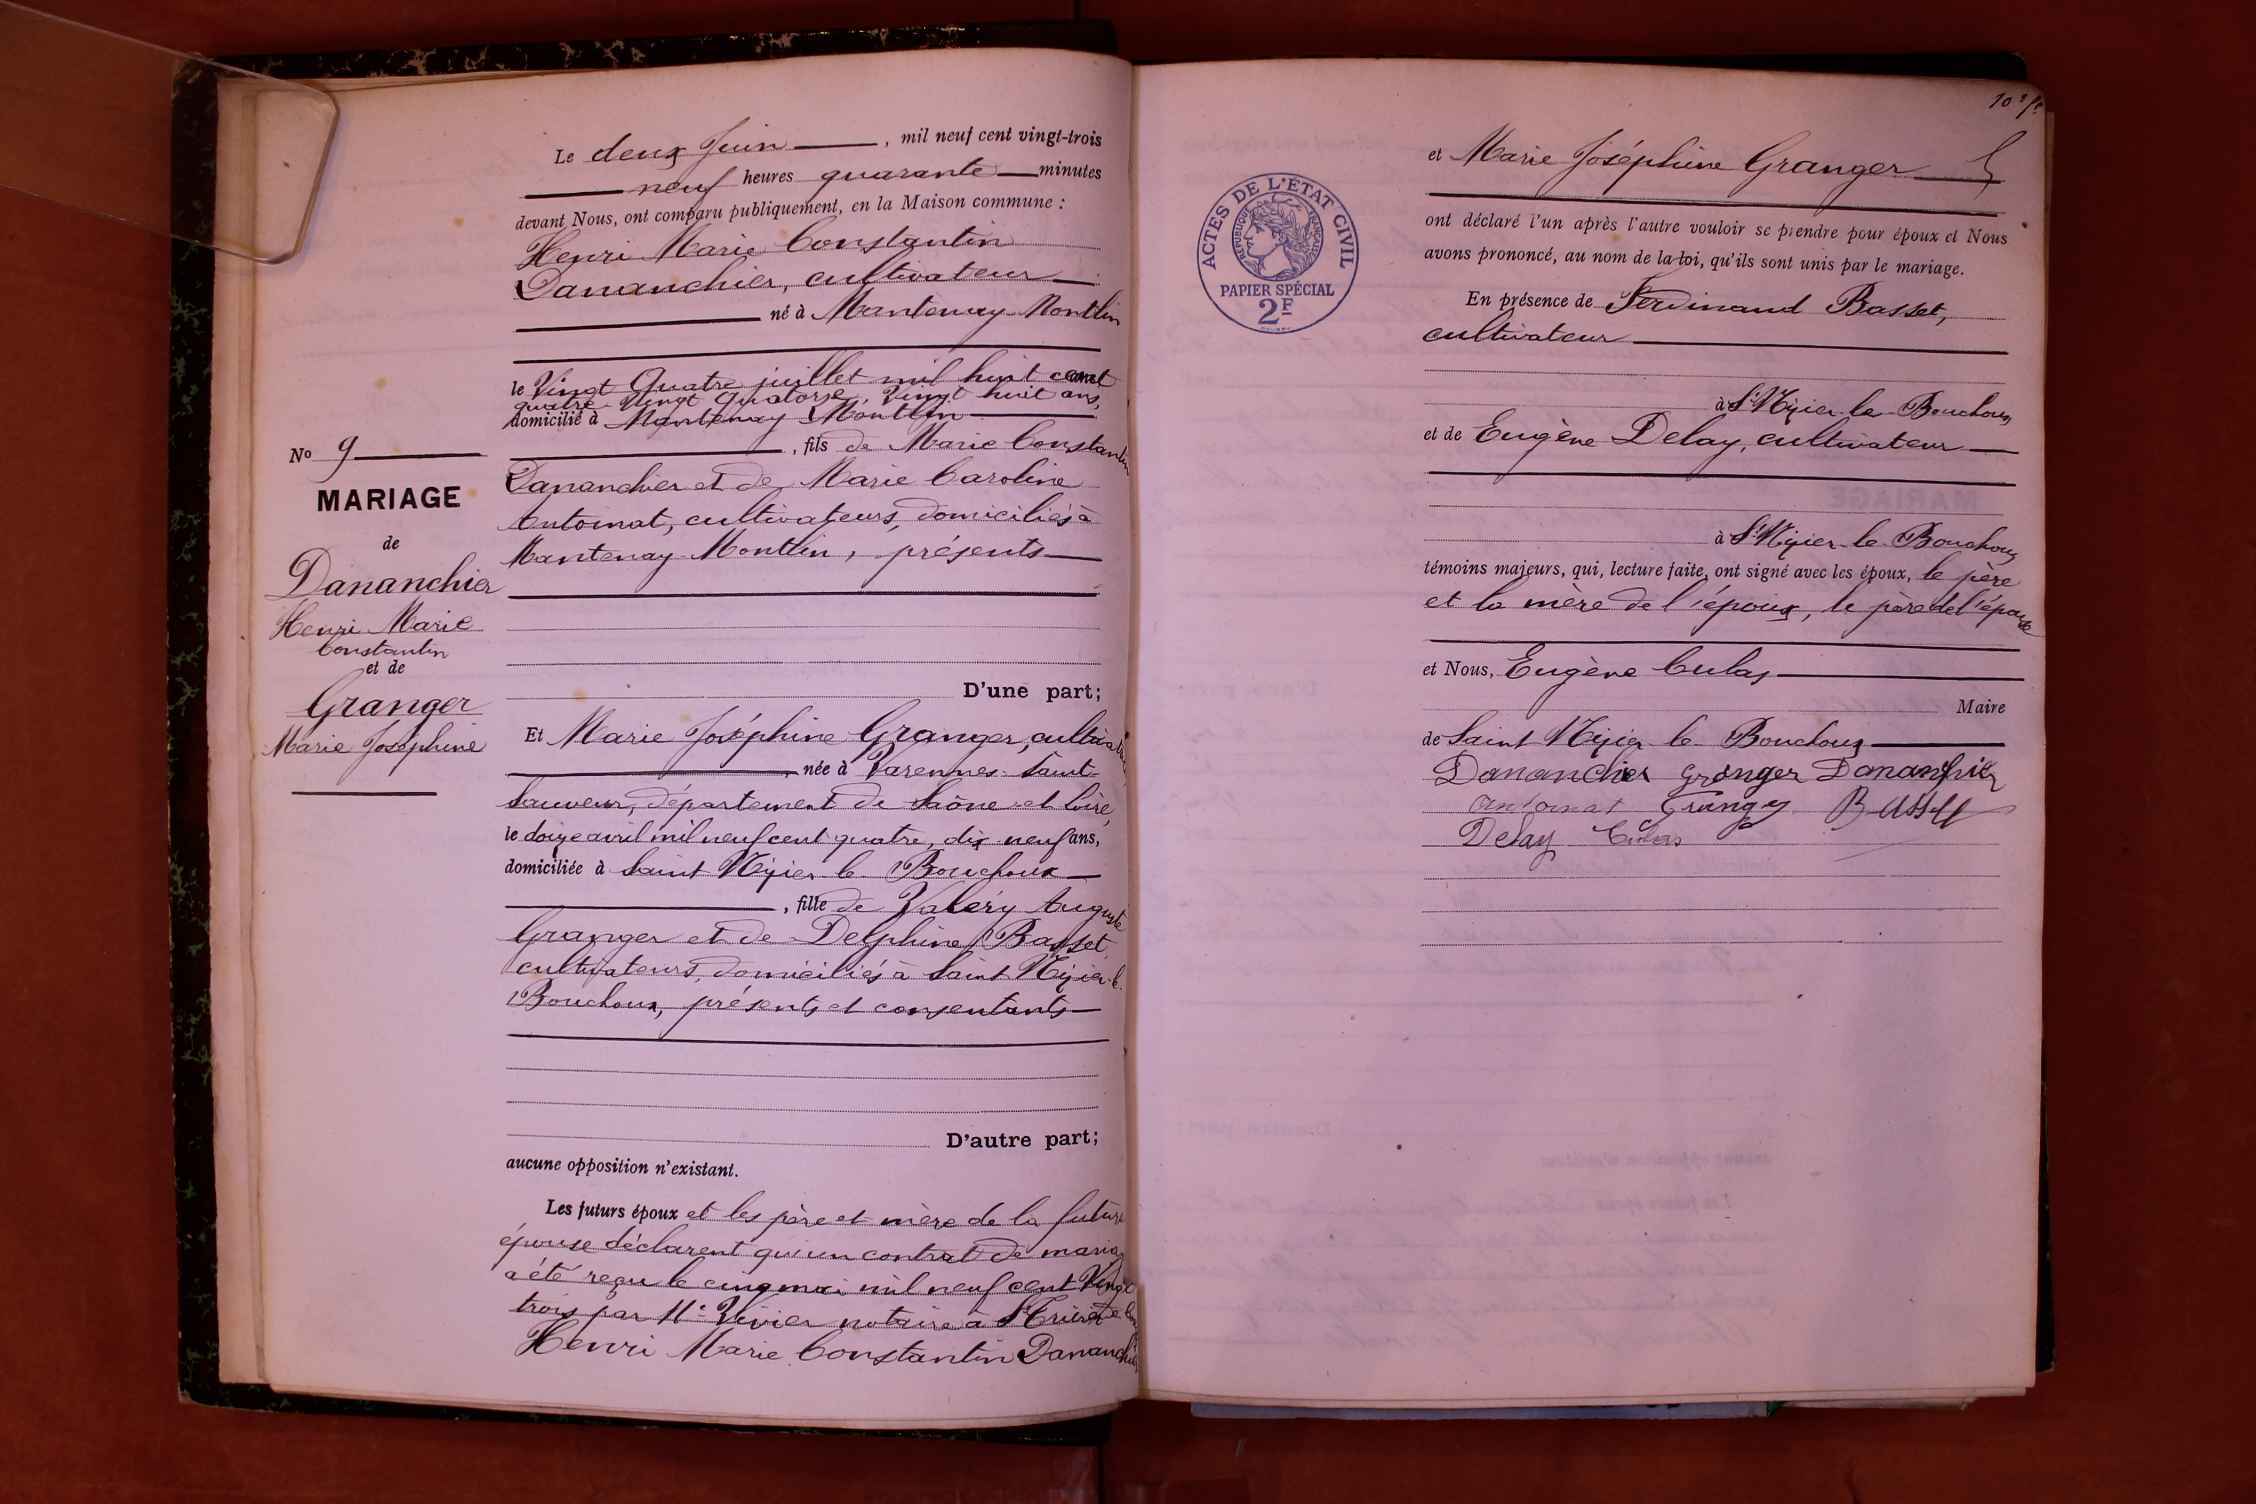 Le deux Juin, mil neuf cent vingt-trois
neuf heures quarante minutes
devant Nous, ont comparu publiquement, en la Maison commune :
Henri Marie Constantin
Dananchier, cultivateur
né à Mantenay-Montlin
le Vingt Quatre juillet mil huit cent
quatre Vingt Quatorse, Vingt huit ans,
domicilié à Mantenay Montlin
, fils de Marie Constantin
Dananchier et de Marie Caroline
Antoinat, cultivateurs, domiciliés à
Mantenay-Montlin, présents
D'une part;
No 9
MARIAGE
de
Dananchier
Henri Marie
Constantin
et de
Granger
Marie Joséphine
Et Marie Joséphine Granger, cultivatrice
née à Varennes-Saint-
Sauveur, département de Saône-et-Loire,
le doize avril mil neuf cent quatre, dix-neuf ans,
domiciliée à Saint Nizier-le-Bouchoux
, fille de Valéry Auguste
Granger et de Delphine Basset,
cultivateurs, domiciliés à Saint-Nizier-le-
Bouchoux, présents et consentants
D'autre part;
aucune opposition n'existant.
Les futurs époux et les père et mère de la future
épouse déclarent qu'un contrat de mariage
a été reçu le cinq mai mil neuf cent Vingt
trois par Me Vivier notaire à St Trivier de
Henri Marie Constantin Dananchier
et Marie Joséphine Granger
ont déclaré l'un après l'autre vouloir se prendre pour époux et Nous
avons prononcé, au nom de la loi, qu'ils sont unis par le mariage.
ACTES DE L'ÉTAT CIVIL
RÉPUBLIQUE FRANÇAISE
PAPIER SPÉCIAL
2F
En présence de Ferdinand Basset,
cultivateur
à St Nizier-le-Bouchoux
et de Eugène Delay, cultivateur
à St Nizier-le-Bouchoux
témoins majeurs, qui, lecture faite, ont signé avec les époux, le père
et la mère de l'époux, le père de l'épouse
et Nous, Eugène Culas
Maire
de Saint Nizier-le-Bouchoux
Dananchier Granger Dananchier
Antoinat Granger Basset
Delay Culas